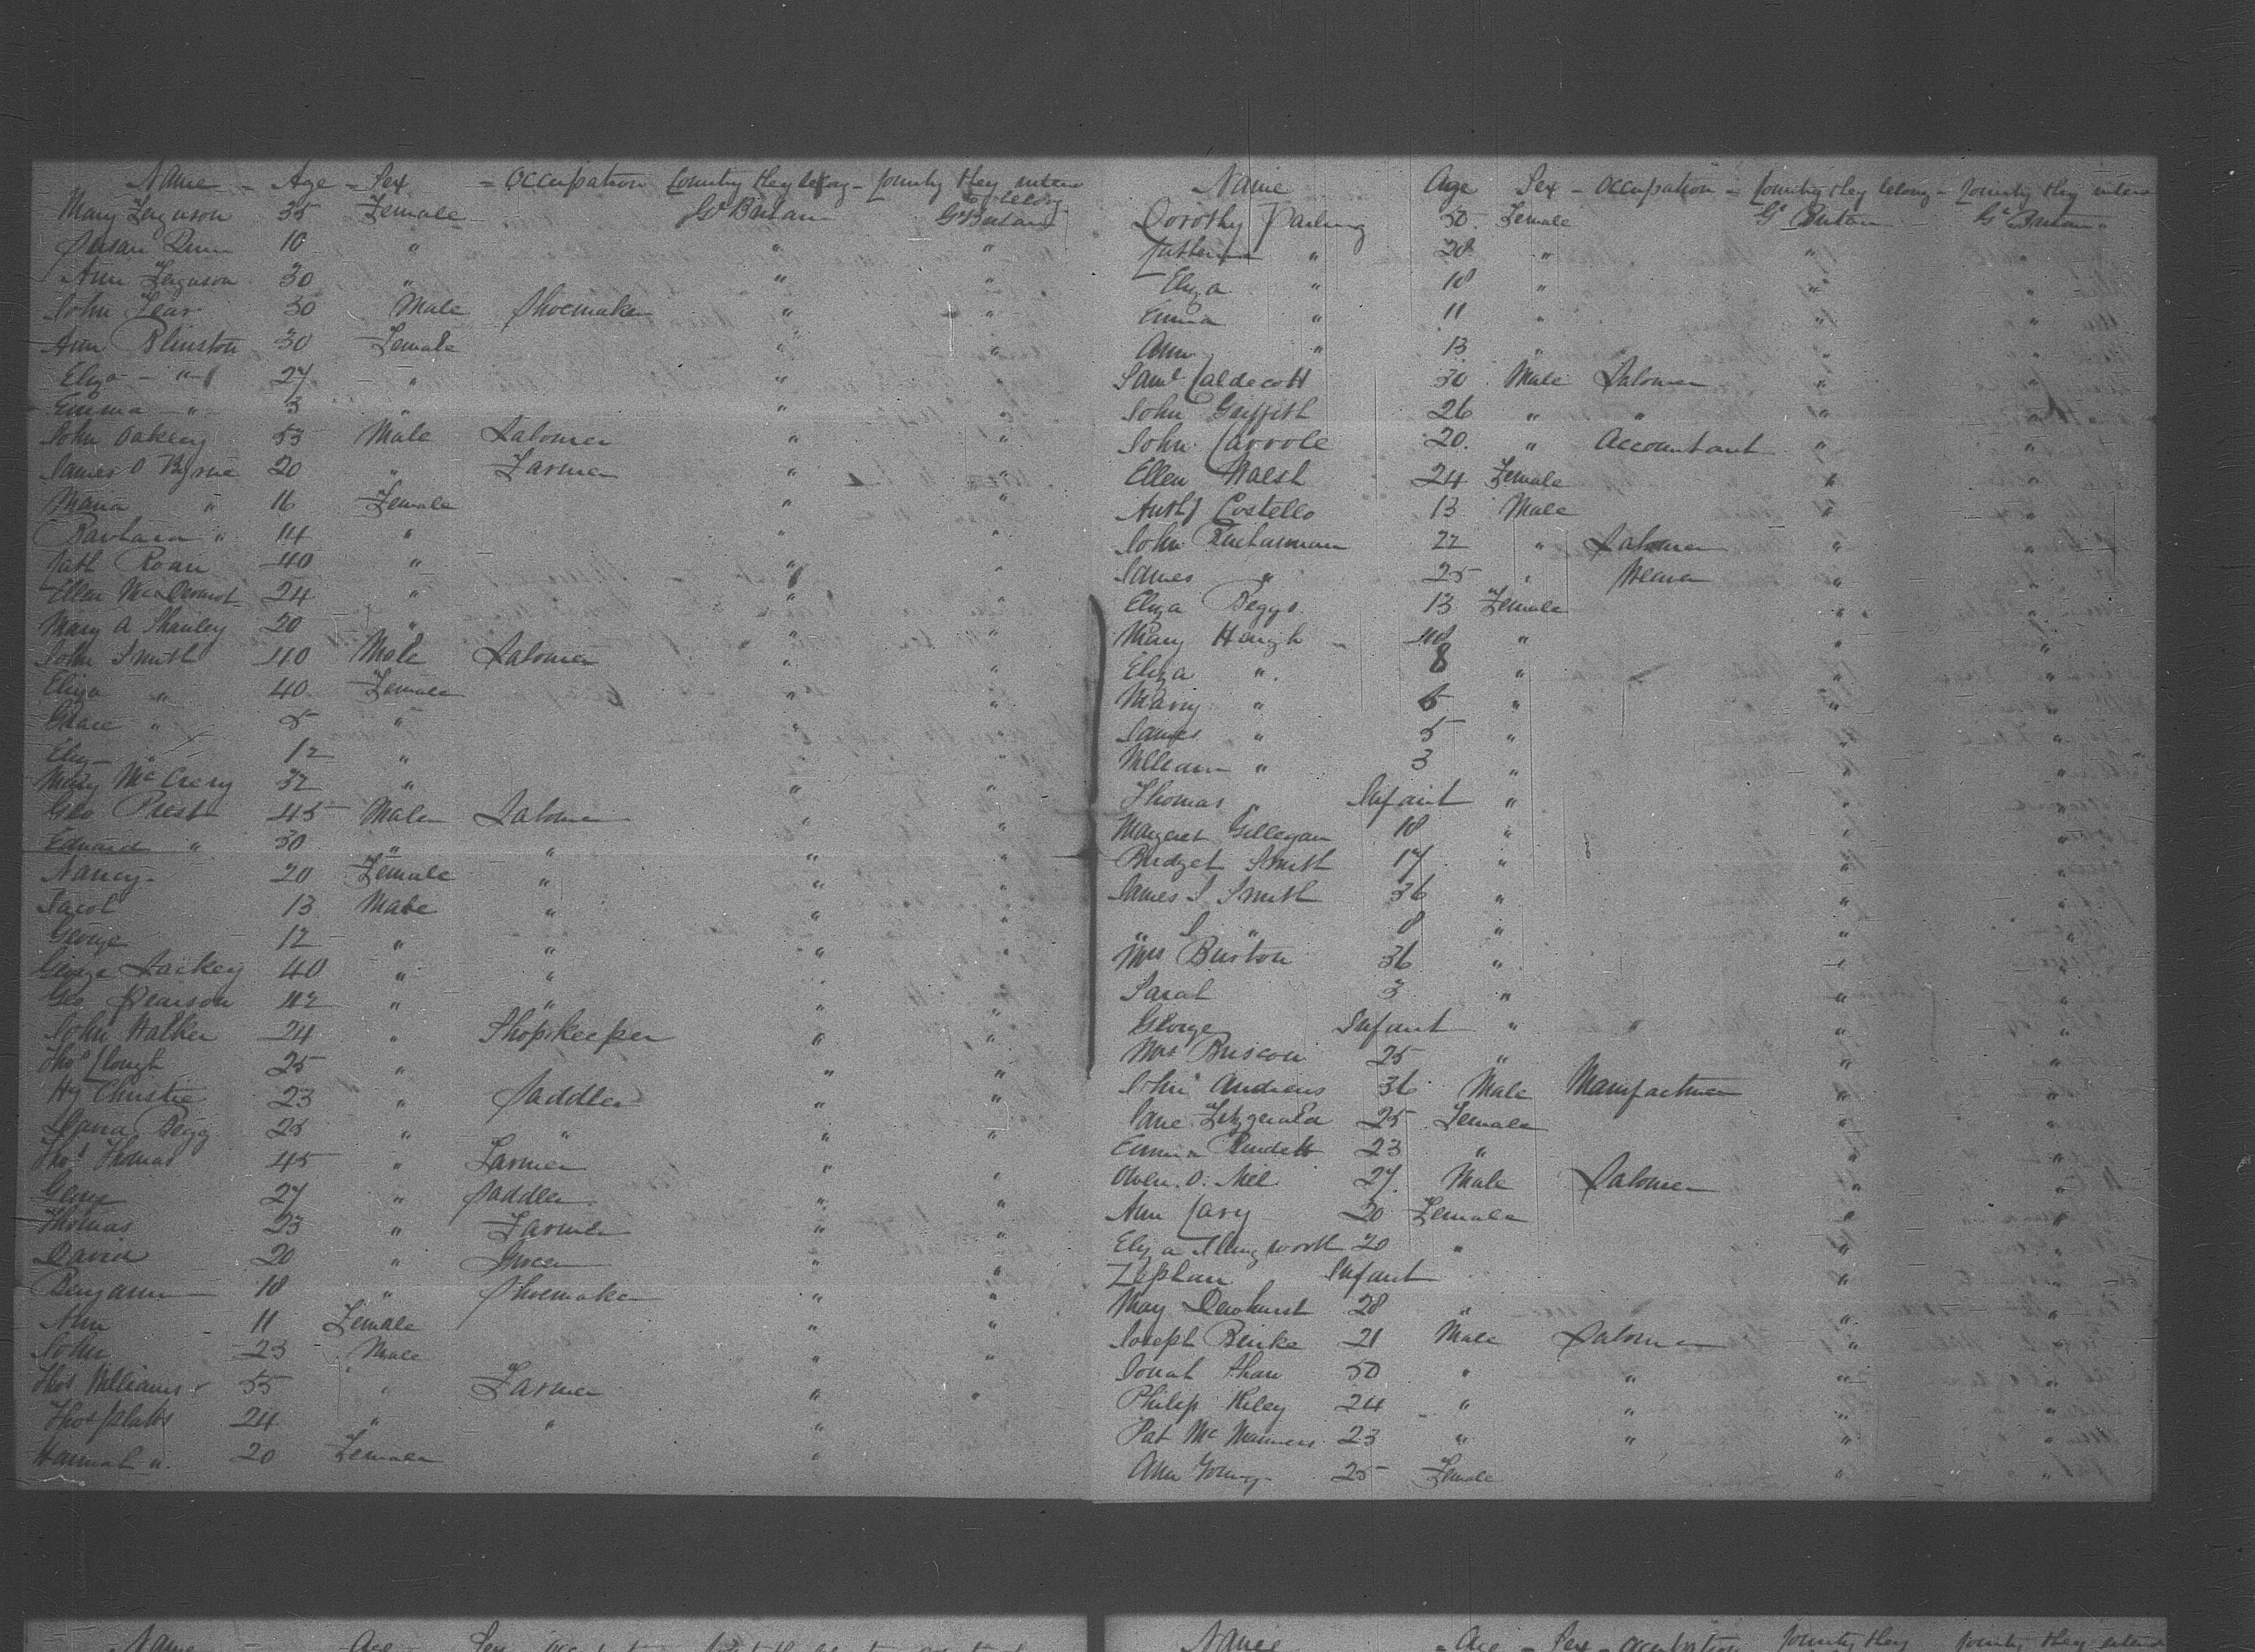 Name - Age - Sex - Occupation Country they belong - Country they intend to belong
Mary Ferguson 35 Female Gt Britain Gt Britain
Susan Dunn 10 " " "
Ann Ferguson 30 " " "
John Fear 30 Male Shoemaker " "
Ann Blinston 30 Female " "
Eliza - " - 27 " " "
Emma - " - 3 " " "
John Oakley 53 Male Labourer " "
James O Byrne 20 " Farmer " "
Maria " 16 Female " "
Barbara " 14 " " "
Cath Roan 40 " " "
Ellen McDermot 24 " " "
Mary A Shanley 20 " " "
John Smith 40 Male Labourer " "
Eliza " 40 Female " "
Grace " 5 " " "
Eliz " 12 " " "
Mary McCrery 32 " " "
Geo Prest 45 Male Labourer " "
Edward " 30 " " " "
Nancy 20 Female " " "
Jacob 13 Male " " "
George 12 " " " "
George Lackey 40 " " " "
Geo Pearson 42 " " " "
John Walker 24 " Shopkeeper " "
Thos Clough 25 " " "
Hy Christie 23 " Saddler " "
David Begg 25 " " " "
Thos Thomas 45 " Farmer " "
27 " Saddler " "
Thomas 23 " Farmer " "
David 20 " Grocer " "
Benjamin 18 " Shoemaker " "
Ann 11 Female " "
John 23 Male " "
Thos Williams 55 " Farmer " "
Thos Platts 24 " " "
Hannah " 20 Female "
Name Age Sex - Occupation - Country they belong - Country they intend
Dorothy Parling 50 Female Gt Britain Gt Britain
" 20 " " "
Eliza " 18 " " "
Emma " 11 " " "
Ann " 13 " " "
Saml Caldecott 30 Male Labourer " "
John Griffith 26 " " " "
John Carrole 20 " Accountant " "
Ellen Walsh 24 Female " "
Anthy Costello 13 Male " "
John 22 " Labourer " "
James " 25 " Weaver " "
Eliza Beggs 13 Female " "
Mary Haugh 40 " " "
Eliza " 8 " " "
Mary " 6 " " "
James " 5 " " "
William " 3 " " "
Thomas " Infant " " "
Margaret Gillegan 18 " " "
Bridget Smith 17 " " "
James S Smith 36 " " "
" S " 8 " " "
Mrs Burton 36 " " "
Sarah 3 " " "
George Infant " " "
Mrs Briscow 25 " " "
John Andrews 36 Male Manufacturer " "
Jane Fitzgerald 25 Female " "
Emma 23 " " "
Owen O. Niel 27 Male Labourer " "
Ann Cary 20 Female " "
Eliza Illingworth 20 " " "
Infant " "
Mary Dewhurst 28 " " "
Joseph Burke 21 Male Labourer " "
Jonah Shaw 50 " " " "
Philip Riley 24 " " " "
Pat McManners 23 " " " "
Ann Young 25 Female " "
Name Age Sex
Name - Age - Sex - Occupation Country they Country they intend